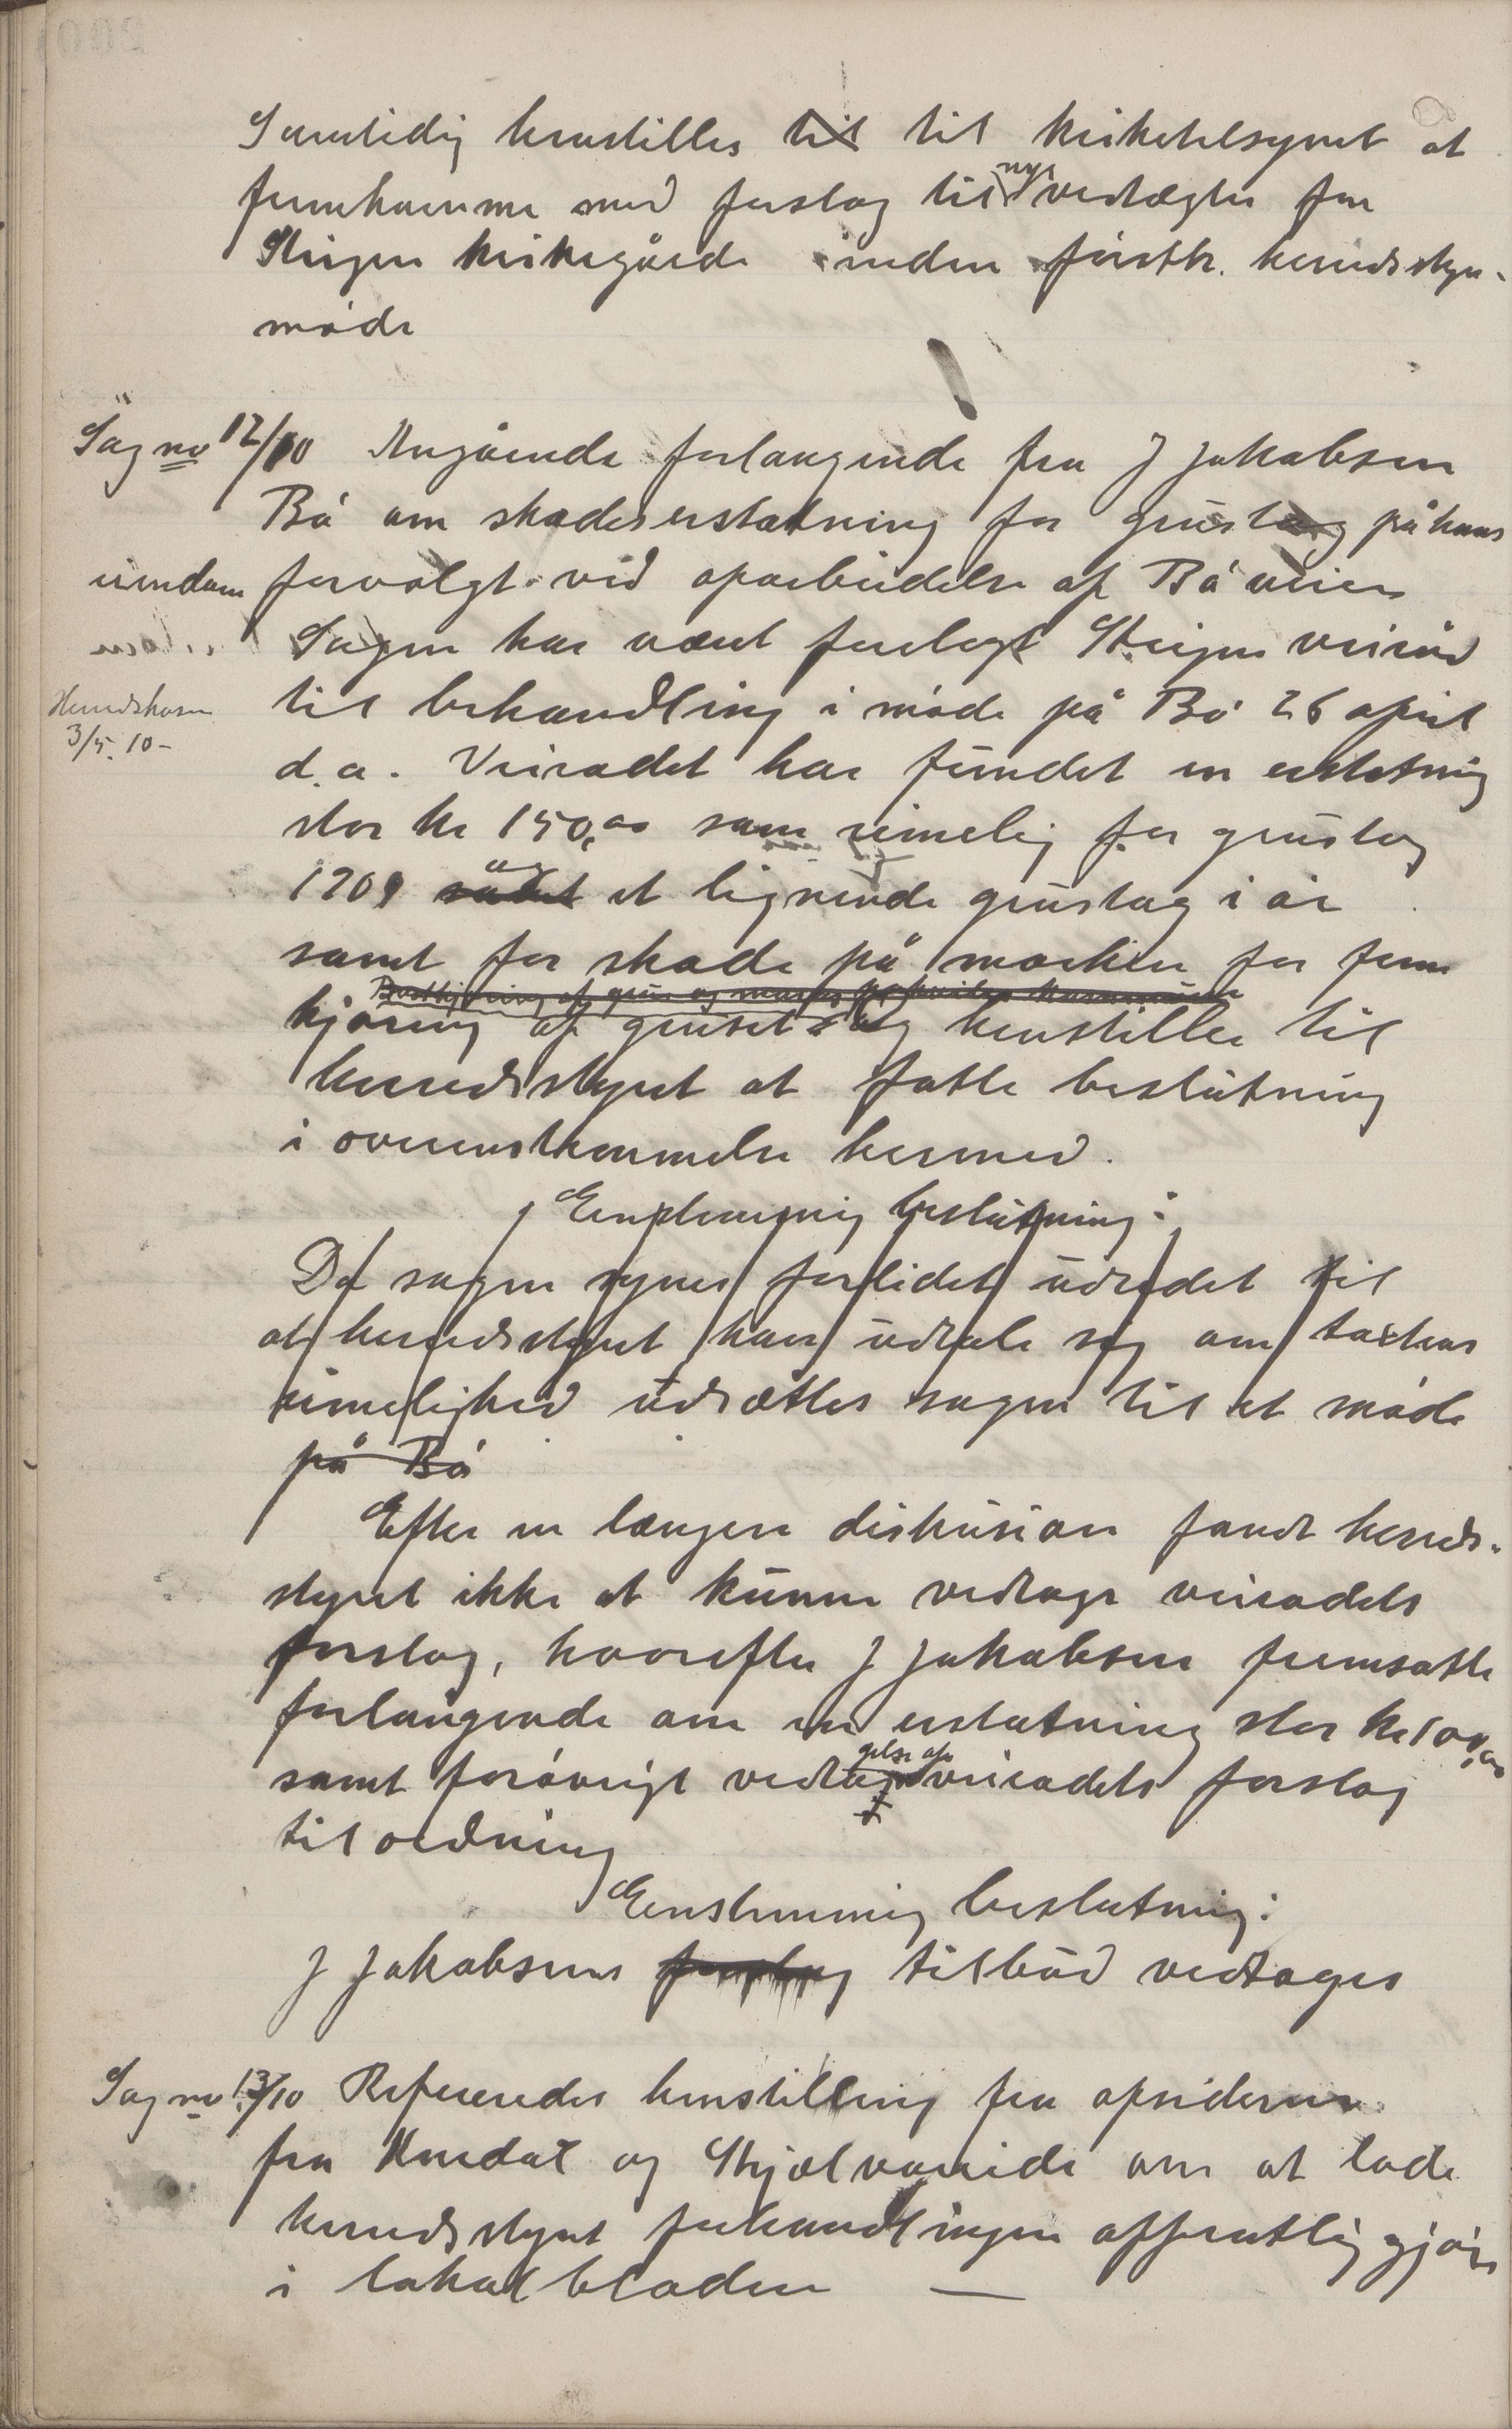 Samtidig henstilles til til kirketilsynet at
fremkomme med forslag til nye vedtægter for
Steigen kirkegårde inden förstk. heredsstyr-
möde
Sag no 12/10 Angående forlangende fra J Jakobsen
Bö om skadeserstatning for grustag på hans
eiendom forvolgt ved oparbeidelse af Bö veien
Sagen har været forelagt Steigen veiråd
til behandling i möde på Bö 26 april
Heredskasse
3/5. 10-
d.a. Veiradet har fundet en erstatning
stor kr 150,00 som rimelig for grustag
1909 og et lignende grustag i år
samt for skade på marken for frem
kjöring af gruset og henstiller til
heredsstyret at fatte beslutning
i overenstemmelse hermed.
Enstemmig beslutning:
Da sagen synes forlidet udredet til
at heredsstyret kan udtale sig om takstens
rimelighed udsættes sagen til et möde
på Bö
Efter en længere diskusion fandt hereds-
styret ikke at kunne vedtage veiradets
forslag, hvorefter J Jakobsen fremsatte
forlangende om en erstatning stor kr 100,00
samt forövrigt vedtagelse af veiradets forslag
til ordning
Eenstemmig beslutning:
J Jakobsens forslag tilbud vedtages
Sag no 13/10 Refereredes henstilling fra opsiderne
fra Nordal og Skjelvareide om at lade
heredsstyret forhandlingen offentlig gjöres
i lokalbladene —